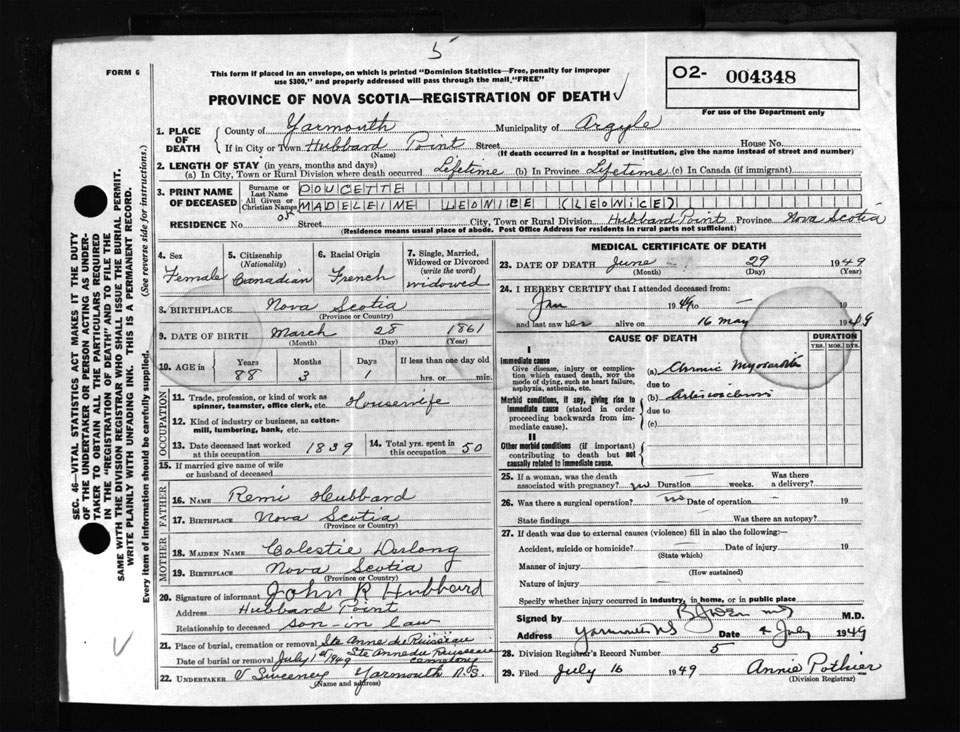 5
FORM 6
This form if placed in an envelope, on which is printed "Dominion Statistics—Free, penalty for improper
use $300," and properly addressed will pass through the mail "FREE"
O2- 004348
For use of the Department only
PROVINCE OF NOVA SCOTIA—REGISTRATION OF DEATH ✓
1. PLACE OF DEATH
County of Yarmouth Municipality of Argyle
If in City or Town Hubbard Point Street House No.
(Name) (If death occurred in a hospital or institution, give the name instead of street and number)
2. LENGTH OF STAY (in years, months and days)
(a) In City, Town or Rural Division where death occurred Lifetime (b) In Province Lifetime (c) In Canada (if immigrant)
3. PRINT NAME OF DECEASED
Surname or Last Name DOUCETTE
All Given or Christian Names MADELEINE LEONICE (LEONICE)
RESIDENCE No. Street City, Town or Rural Division Hubbard Point Province Nova Scotia
(Residence means usual place of abode. Post Office Address for residents in rural parts not sufficient)
4. Sex
Female
5. Citizenship
(Nationality)
Canadian
6. Racial Origin
French
7. Single, Married, Widowed or Divorced
(write the word)
widowed
8. BIRTHPLACE Nova Scotia
(Province or Country)
9. DATE OF BIRTH March 28 1861
(Month) (Day) (Year)
10. AGE in
Years Months Days If less than one day old
88 3 1 hrs. or min.
OCCUPATION
11. Trade, profession, or kind of work as
spinner, teamster, office clerk, etc. Housewife
12. Kind of industry or business, as cotton-
mill, lumbering, bank, etc.
13. Date deceased last worked
at this occupation 1839
14. Total yrs. spent in
this occupation 50
15. If married give name of wife
or husband of deceased
FATHER
16. NAME Remi Hubbard
17. BIRTHPLACE Nova Scotia
(Province or Country)
MOTHER
18. MAIDEN NAME Colestie
19. BIRTHPLACE Nova Scotia
(Province or Country)
20. Signature of informant John R Hubbard
Address Hubbard Point
Relationship to deceased son-in law
21. Place of burial, cremation or removal Ste Anne du Ruisseau
Ste Anne du Ruisseau
Date of burial or removal July 1st 1949 cemetery
22. UNDERTAKER V Sweeney Yarmouth N.S.
(Name and address)
MEDICAL CERTIFICATE OF DEATH
23. DATE OF DEATH June 29 1949
(Month) (Day) (Year)
24. I HEREBY CERTIFY that I attended deceased from:
Jan 1949 to — 19
and last saw her alive on 16 May 1949
CAUSE OF DEATH
DURATION
YRS. MOS. DYS.
I
Immediate cause
Give disease, injury or complica-
tion which caused death, NOT the
mode of dying, such as heart failure,
asphyxia, asthenia, etc.
(a) Chronic Myocarditis
due to
Morbid conditions, if any, giving rise to
immediate cause (stated in order
proceeding backwards from im-
mediate cause).
(b) Arteriosclerosis
due to
(c)
II
Other morbid conditions (if important)
contributing to death but not
causally related to immediate cause.
25. If a woman, was the death
associated with pregnancy? no Duration weeks. Was there
a delivery?
26. Was there a surgical operation? no Date of operation — 19
State findings Was there an autopsy?
27. If death was due to external causes (violence) fill in also the following:—
Accident, suicide or homicide? Date of injury 19
(State which)
Manner of injury
(How sustained)
Nature of injury
Specify whether injury occurred in industry, in home, or in public place
Signed by M.D.
Address Yarmouth NS Date 4 July 1949
28. Division Registrar's Record Number 5
29. Filed July 16 1949 Annie Pothier
(Division Registrar)
SEC. 46—VITAL STATISTICS ACT MAKES IT THE DUTY
OF THE UNDERTAKER OR PERSON ACTING AS UNDER-
TAKER TO OBTAIN ALL THE PARTICULARS REQUIRED
IN THE "REGISTRATION OF DEATH" AND TO FILE THE
SAME WITH THE DIVISION REGISTRAR WHO SHALL ISSUE THE BURIAL PERMIT.
WRITE PLAINLY WITH UNFADING INK. THIS IS A PERMANENT RECORD.
Every item of information should be carefully supplied. (See reverse side for instructions.)